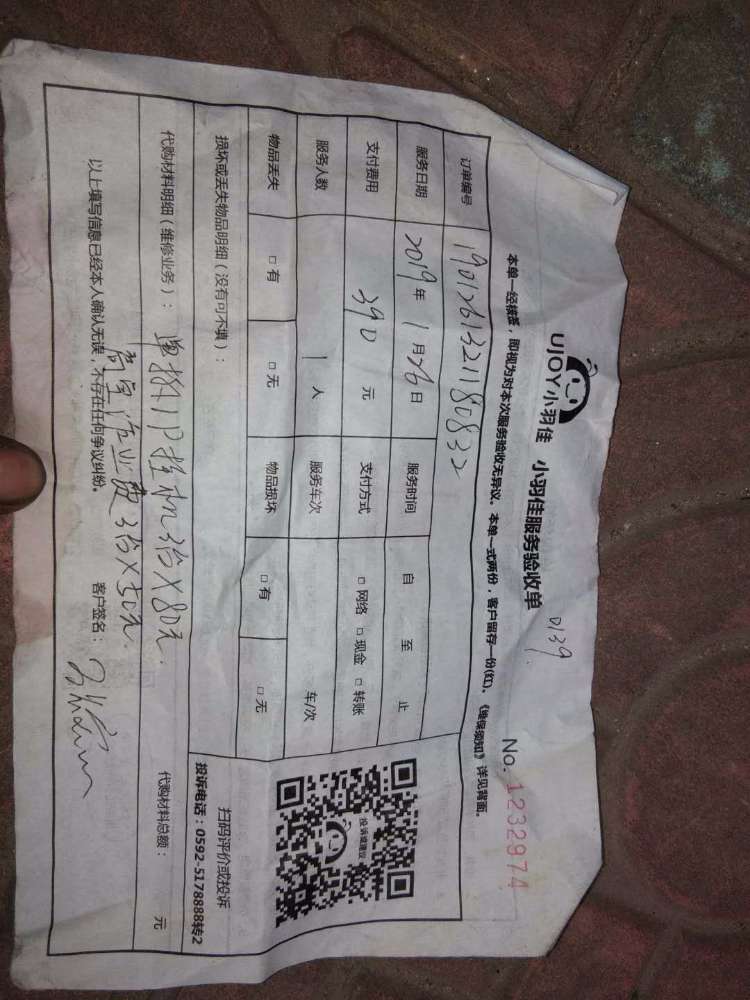 UJOY小羽佳 小羽佳服务验收单 0139
No. 1232974
本单一经核签，即视为对本次服务验收无异议。本单一式两份，客户留存一份(红)。《维保须知》详见背面。
订单编号 1901261321180832
服务日期 2019年1月26日 服务时间 自 至 止
支付费用 390元 支付方式 □网络 □现金 □转账
服务人数 1人 服务车次 车/次
物品丢失 □有 □无 物品损坏 □有 □无
投诉或建议
扫码评价或投诉
投诉电话：0592-5178888转2
损坏或丢失物品明细（没有可不填）：
代购材料明细（维修业务）： 单拆1P挂机3台×80元. 代购材料总额： 元
高空作业费3台×50元.
以上填写信息已经本人确认无误，不存在任何争议纠纷。 客户签名：